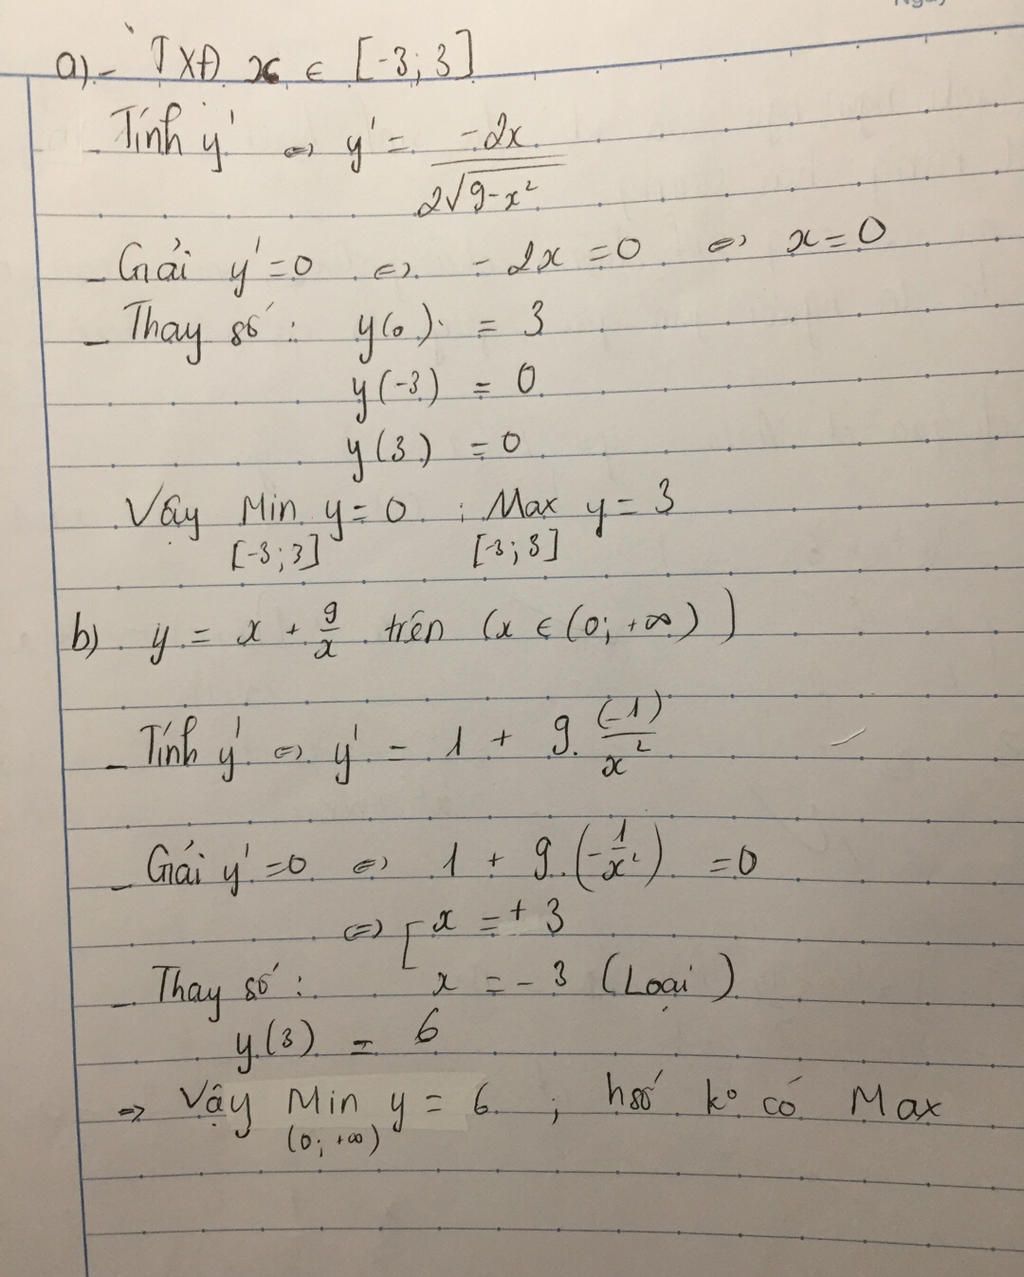 a) - TXĐ x ∈ [-3; 3]
- Tính y' ⇔ y' = -2x / 2√9-x²
- Giải y' = 0 ⇔ -2x = 0 ⇔ x = 0
- Thay số: y(0) = 3
y(-3) = 0
y(3) = 0
Vậy Min y = 0 ; Max y = 3
[-3; 3] [-3; 3]
b) y = x + 9/x trên (x ∈ (0; +∞))
- Tính y' ⇔ y' = 1 + 9. (-1)/x²
- Giải y' = 0 ⇔ 1 + 9. (-1/x²) = 0
⇔ [ x = + 3
- Thay số: x = - 3 (Loại)
y(3) = 6
⇒ Vậy Min y = 6 ; hsố ko có Max
(0; +∞)